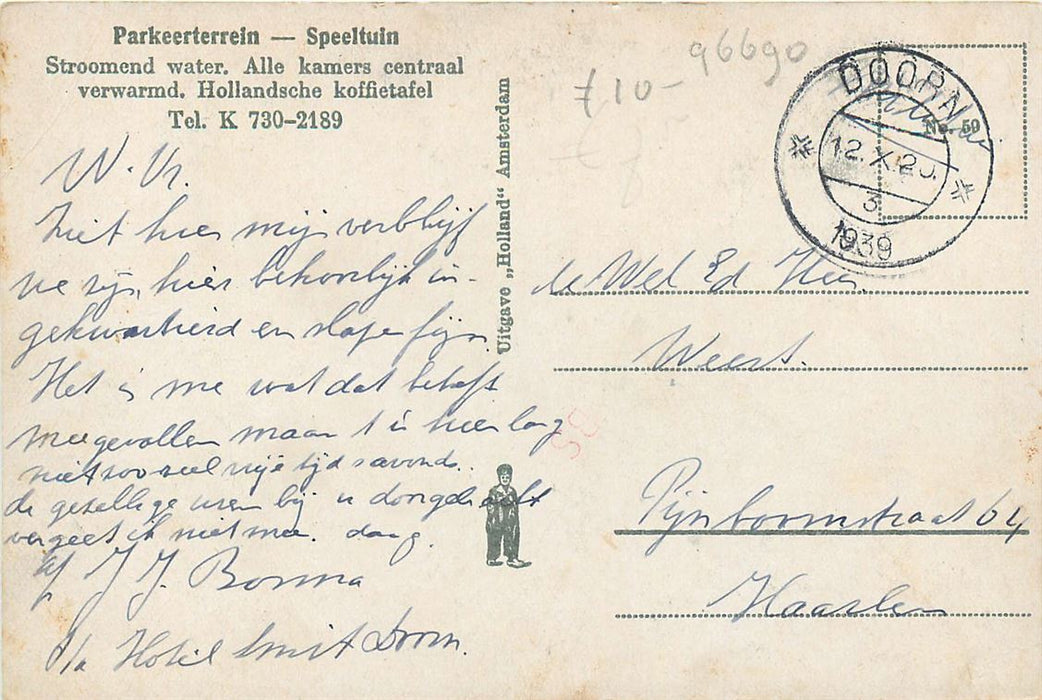 Parkeerterrein — Speeltuin
Stroomend water. Alle kamers centraal
verwarmd. Hollandsche koffietafel
Tel. K 730-2189
W. Vr.
Ziet hier mijn verblijf
we zijn hier behoorlijk in-
gekwartierd en slapen fijn.
Het is me wat dat betreft
meegevallen maar 't is hier lang
niet zoo veel vrije tijd s'avonds.
de gezellige uren bij u doorgebracht
vergeet ik niet meer. dag.
J J. Bosma
p/a Hotel Smit Doorn.
Uitgave „Holland" Amsterdam
£ 10-
96690
DOORN
12.X.
3
1939
No. 59
de Wel Ed Heer
Weert.
Pijnboomstraat 64
Haarlem